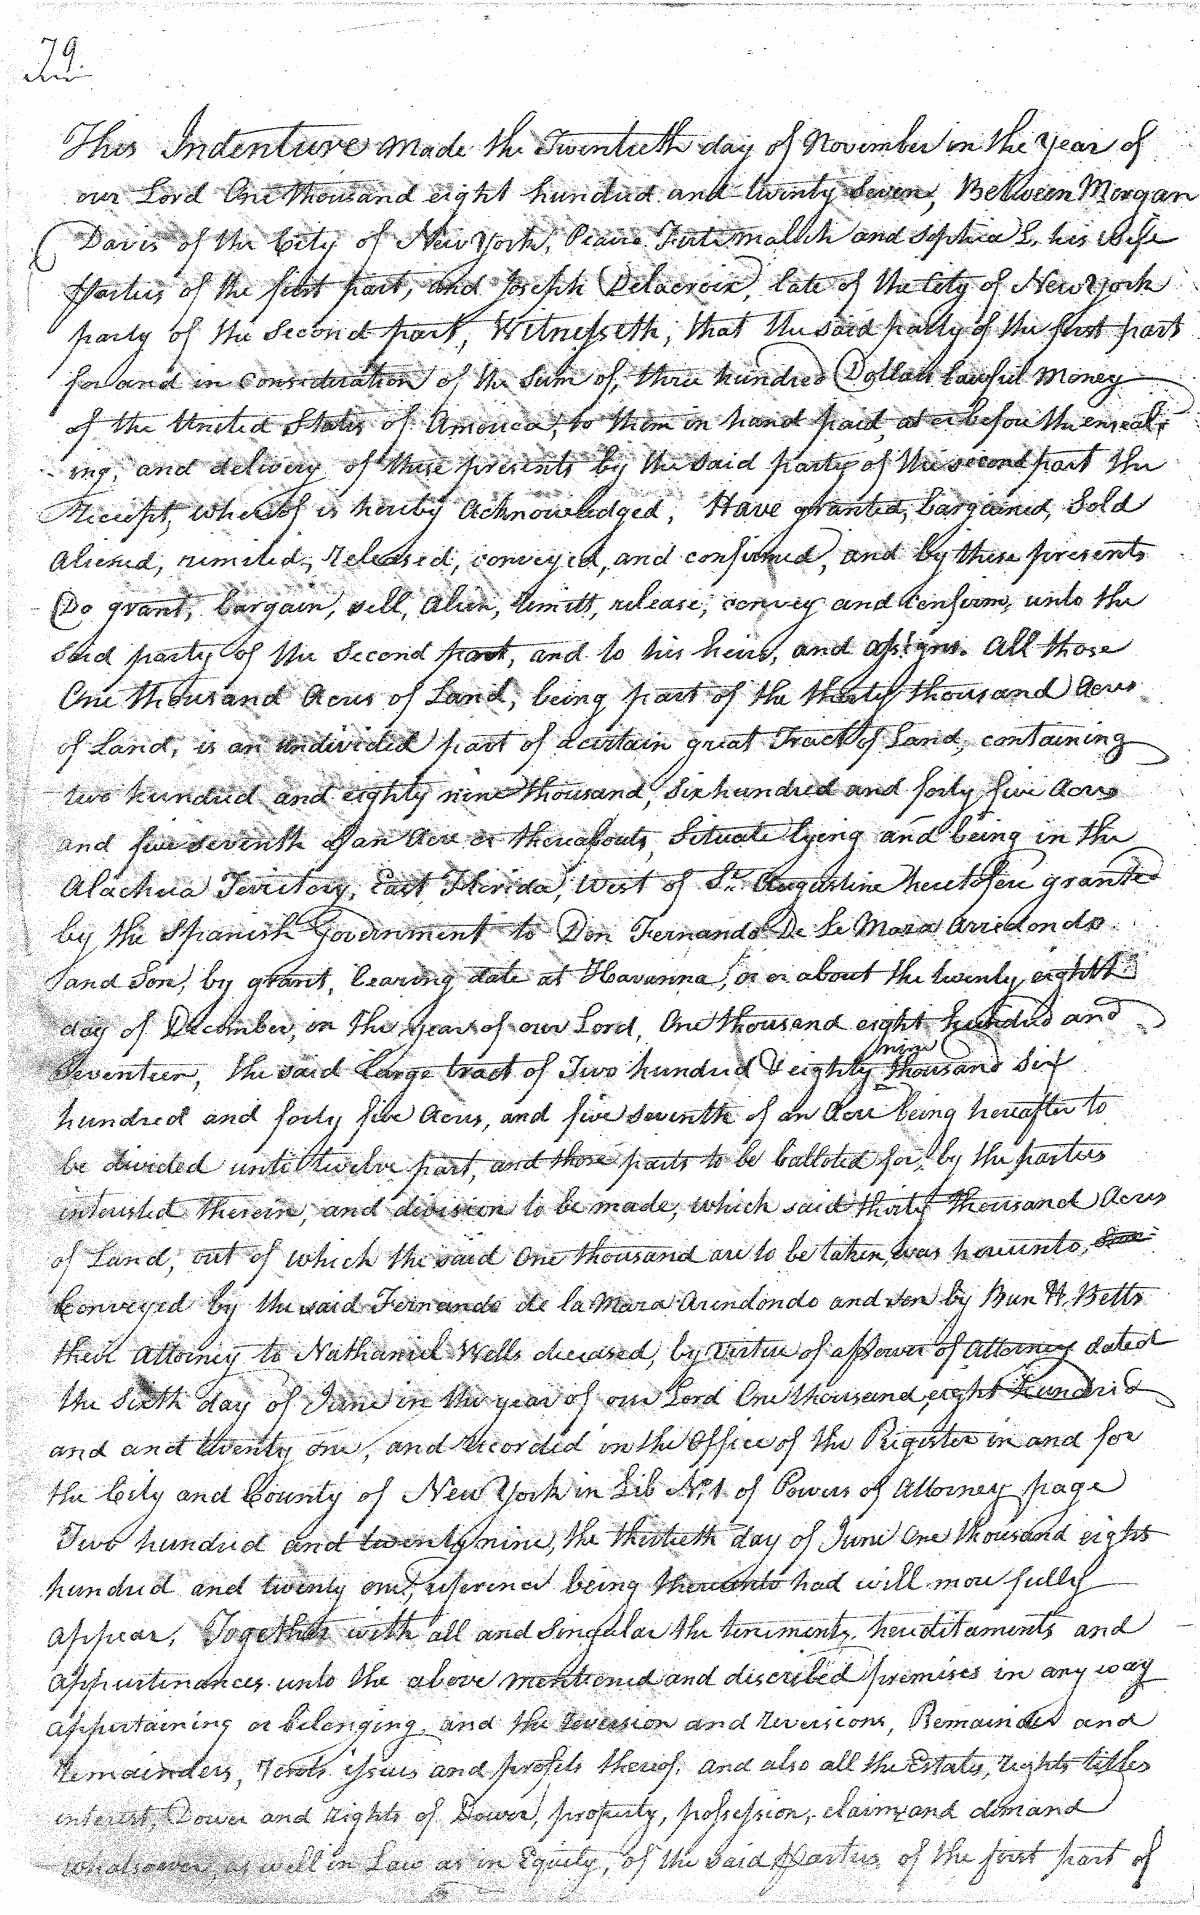 79.
This Indenture made the Twentieth day of November in the Year of
our Lord One thousand eight hundred and twenty Seven, Between Morgan
Davis of the City of New York, Peaire and Sophia L. his wife
Parties of the first part, and Joseph Delacroix, late of the City of New York
party of the Second part, Witnesseth, that the said party of the first part
for and in Consideration of the Sum of, three hundred Dollars lawful Money
of the United States of America, to them in hand paid, at or before the enseal-
ing, and delivery of these presents by the said party of the second part the
Receipt, whereof is hereby Acknowledged, Have granted, bargained, Sold
Aliened, remited, released, conveyed, and confirmed, and by these presents
Do grant, bargain, sell, Alien, remitt, release, convey and Confirm, unto the
said party of the Second part, and to his heirs, and assigns. All those
One thousand Acres of Land, being part of the thirty thousand Acres
of Land, is an undivided part of a certain great Tract of Land, containing
two hundred and eighty nine thousand, Six hundred and forty five Acres
and five seventh of an Acre or thereabouts, Situate lying and being in the
Alachua Territory, East Florida, West of St. Augustine heretofore granted
by the Spanish Government to Don Fernando De Le Mara Arredondo
and Son, by grant, bearing date at Havanna, or or about the twenty eightt
day of December, in the year of our Lord, One thousand eight hundred and
Seventeen, the said large tract of Two hundred & eighty nine thousand Six
hundred and forty five Acres, and five seventh of an Acre being hereafter to
be divided unto twelve part, and those parts to be balloted for, by the parties
interested therein, and division to be made, which said thirty thousand Acres
of Land, out of which the said One thousand are to be taken, was hereunto,
Conveyed by the said Fernando de la Mara Arendondo and son by Bun H. Betts
their Attorney to Nathaniel Wells deceased, by virtue of a Power of Attorney dated
the Sixth day of June in the year of our Lord One thousand, eight hundred
and and twenty one, and recorded in the Office of the Register in and for
the City and County of New York in Lib No. 1 of Powers of Attorney page
Two hundred and twenty nine, the thirtieth day of June One thousand eight
hundred and twenty one, reference being thereunto had will more fully
appear. Together with all and Singular the tenements, hereditaments and
appurtenances unto the above mentioned and discribed premises in any way
appertaining or belonging, and the reversion and reversions, Remainder and
Remainders, Rents issues and profits thereof. and also all the Estate, rights titles
interest, Dower and rights of Dower, property, possession, claim, and demand
whatsoever, as well in Law as in Equity, of the said Parties of the first part of